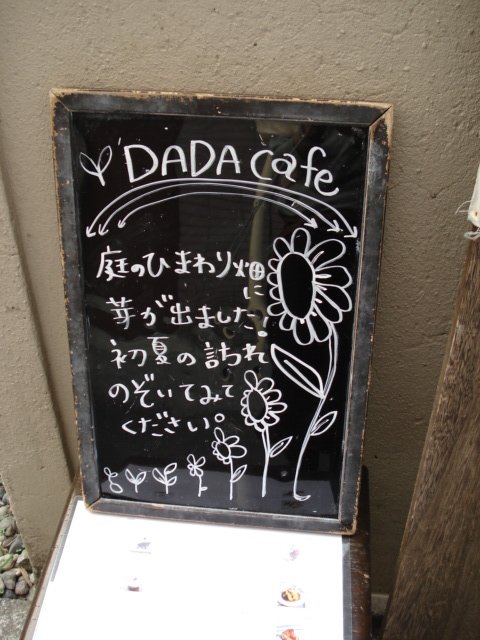 DADA cafe
庭のひまわり畑に
芽が出ました!
初夏の訪れ
のぞいてみて
ください。